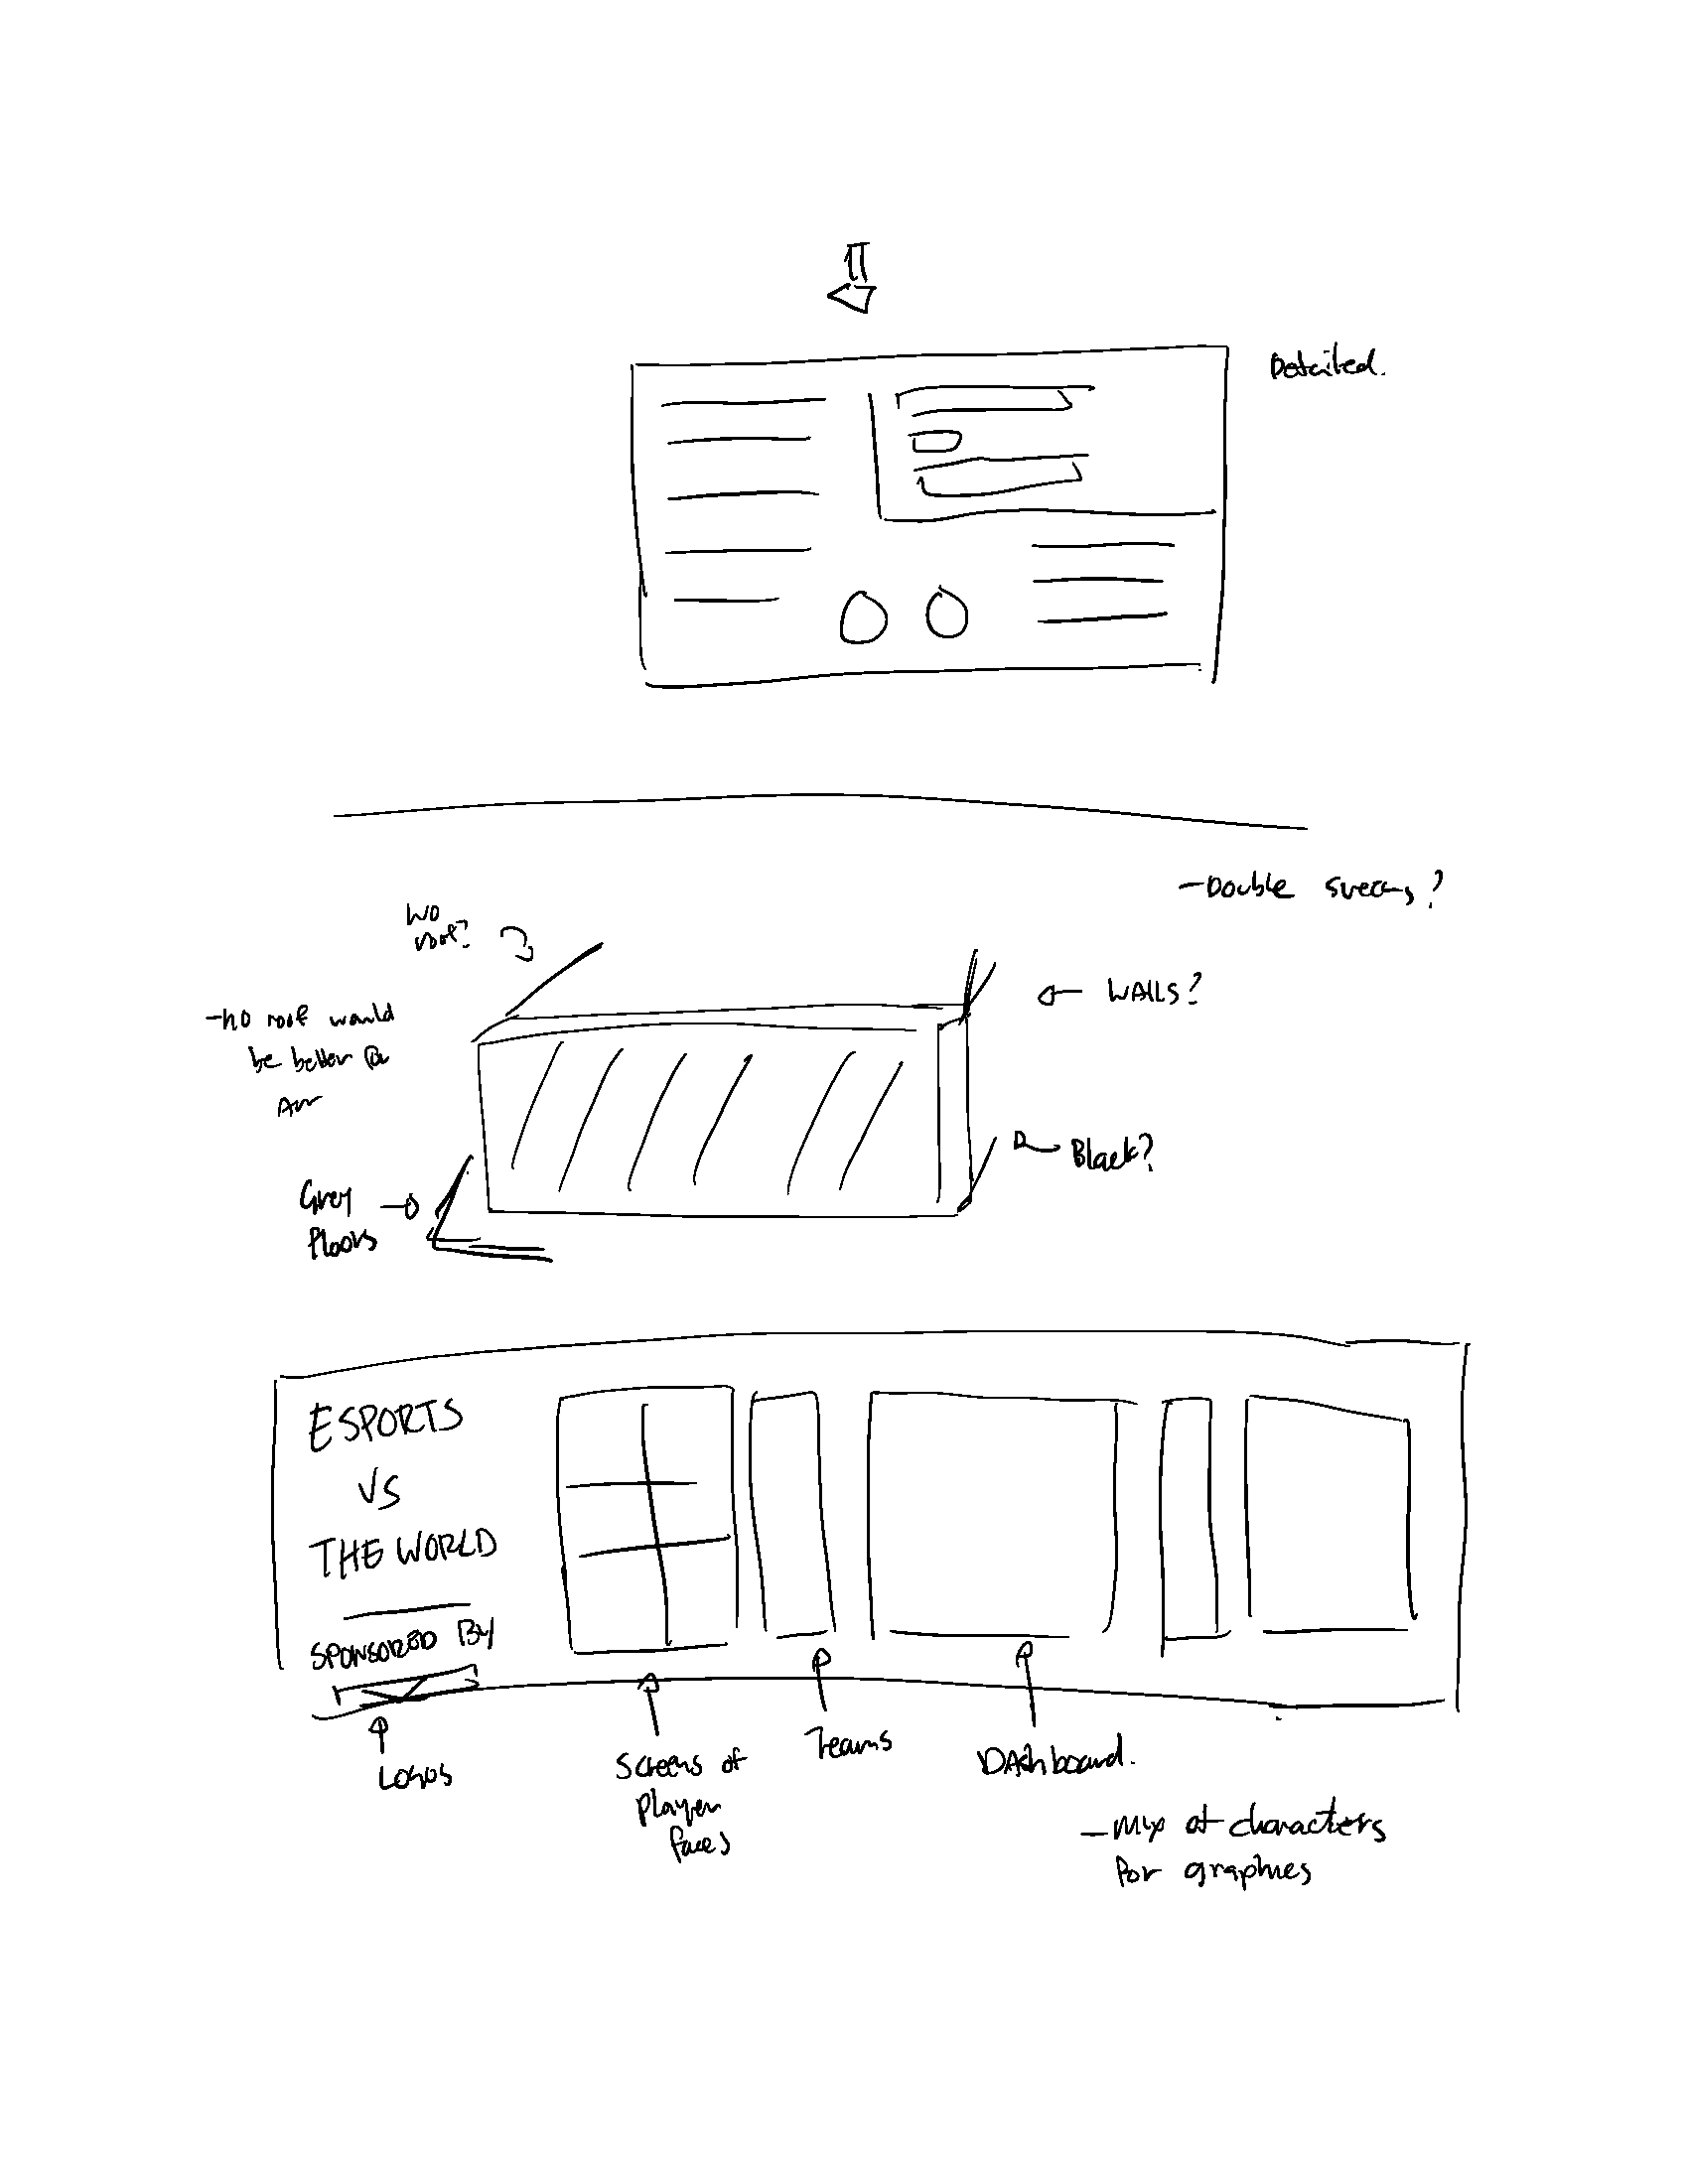 Detailed.
-Double screens?
no
roof?
WALLS?
-no roof would
be better for
Black?
Grey
floors
ESPORTS
VS
THE WORLD
SPONSORED BY
Logos
Screens of
player
faces
Teams
DAshboard.
- Mix of characters
for graphics